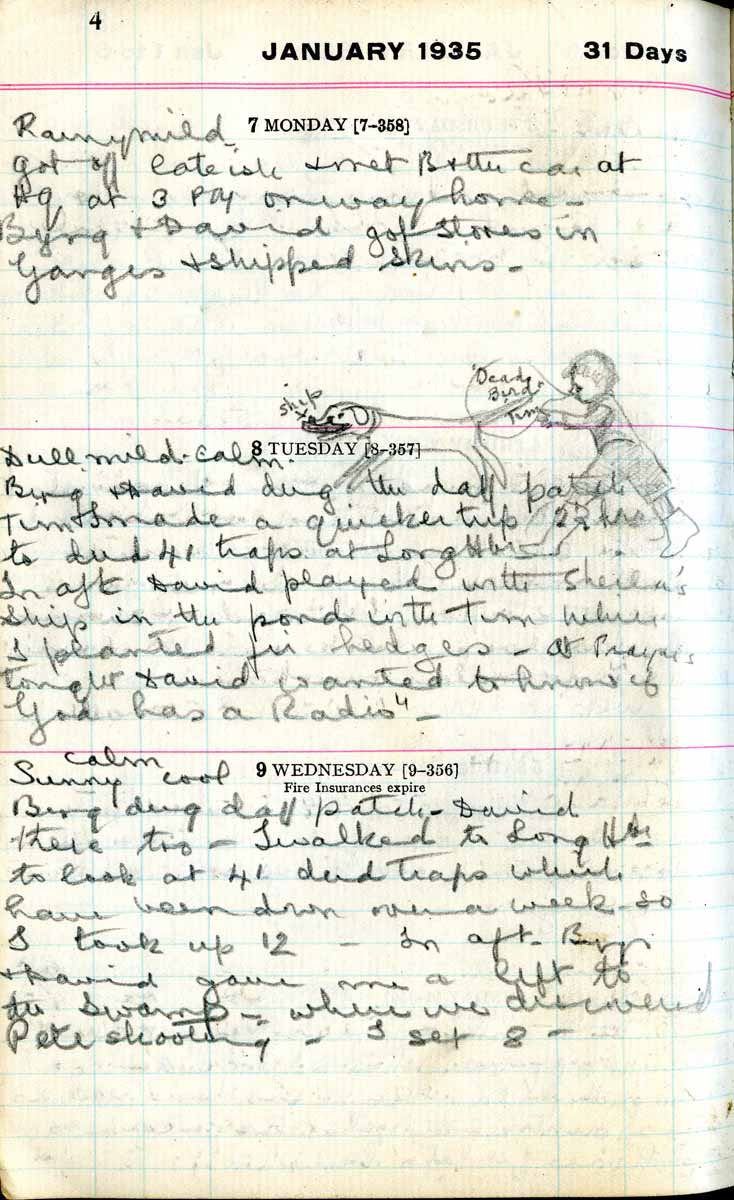 4
JANUARY 1935 31 Days
7 MONDAY [7-358]
Rainy mild
Got off lateish & met B & the car at
HQ at 3 PM on way home -
Byng & David got stores in
Ganges & shipped skins -
"Dead
Bird"
Tim
ship
8 TUESDAY [8-357]
Dull. mild. calm.
Byng & David dug the daff patch
Tim & I made a quicker trip 2½ hrs
to dud 41 traps at Long Hbr
In aft David played with Sheila's
ship in the pond with Tim while
I planted fir hedges - At Prayers
tonight David wanted to know "if
God has a Radio" -
9 WEDNESDAY [9-356]
Fire Insurances expire
calm
Sunny cool
Byng dug daff patch - David
there too - I walked to Long Hbr
to look at 41 dud traps which
have been down over a week so
I took up 12 - In aft - Byng
& David gave me a lift to
the Swamp - where we discovered
Pete shooting - I set 8 -